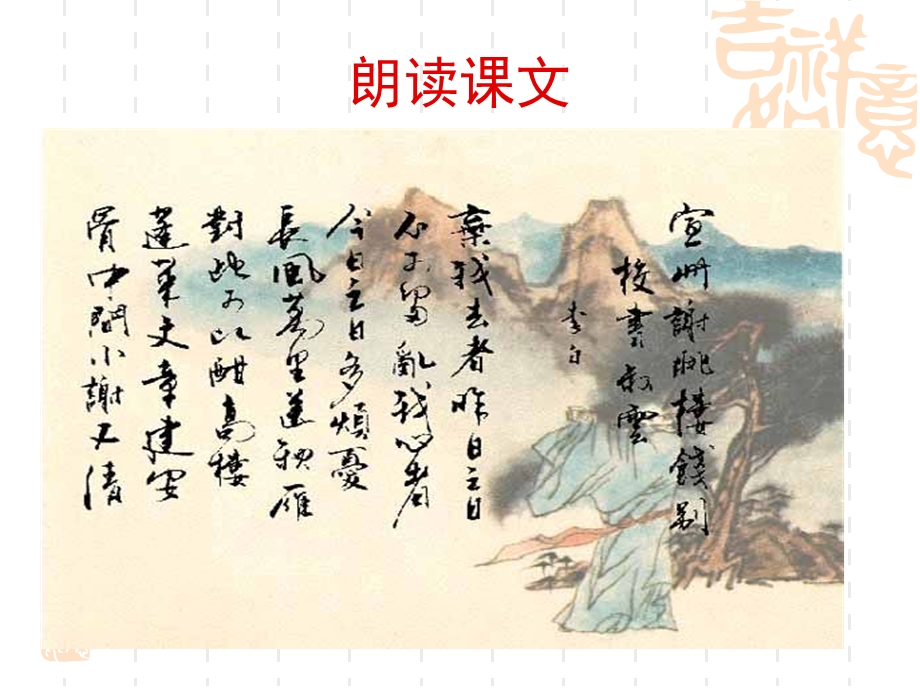 朗读课文
吉祥如意
宣州謝朓樓餞別
校書叔雲
李白
棄我去者昨日之日
不可留亂我心者
今日之日多煩憂
長風萬里送秋雁
對此可以酣高樓
蓬萊文章建安
骨中間小謝又清